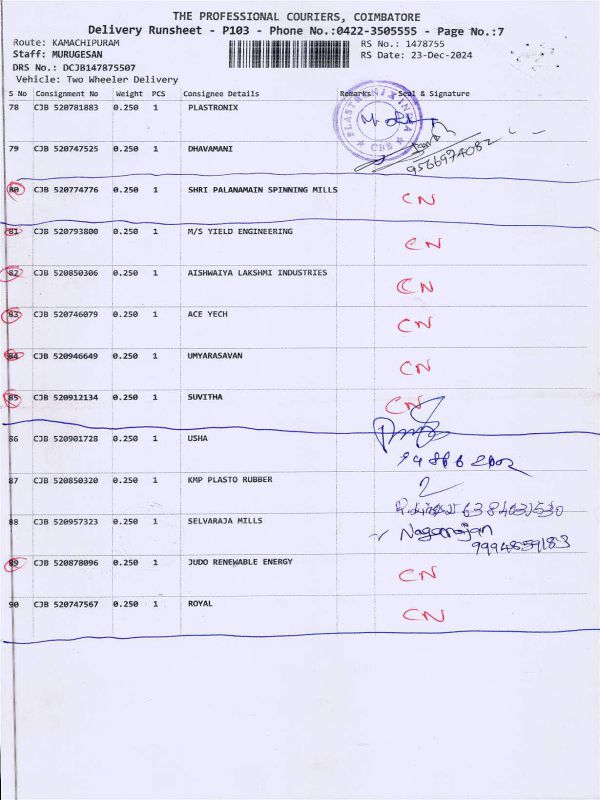 THE PROFESSIONAL COURIERS, COIMBATORE
Delivery Runsheet - P103 - Phone No.:0422-3505555 - Page No.:7
Route: KAMACHIPURAM RS No.: 1478755
Staff: MURUGESAN RS Date: 23-Dec-2024
DRS No.: DCJB147875507
Vehicle: Two Wheeler Delivery
S No Consignment No Weight PCS Consignee Details Remarks Seal & Signature
78 CJB 520781883 0.250 1 PLASTRONIX
PLASTRONIX INDIA CBE
79 CJB 520747525 0.250 1 DHAVAMANI
9566974082
80 CJB 520774776 0.250 1 SHRI PALANAMAIN SPINNING MILLS CN
81 CJB 520793800 0.250 1 M/S YIELD ENGINEERING CN
82 CJB 520850306 0.250 1 AISHWAIYA LAKSHMI INDUSTRIES CN
83 CJB 520746079 0.250 1 ACE YECH CN
84 CJB 520946649 0.250 1 UMYARASAVAN CN
85 CJB 520912134 0.250 1 SUVITHA CN
86 CJB 520901728 0.250 1 USHA
87 CJB 520850320 0.250 1 KMP PLASTO RUBBER
88 CJB 520957323 0.250 1 SELVARAJA MILLS Nagarajan
9994859183
89 CJB 520878096 0.250 1 JUDO RENEWABLE ENERGY CN
90 CJB 520747567 0.250 1 ROYAL CN